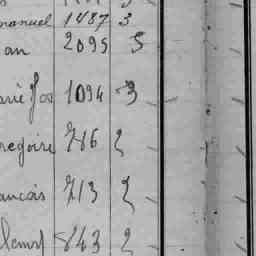 manuel 1487 3
an 2095 3
arie Jos 1094 3
regoire 716 2
ancois 713 2
843 2